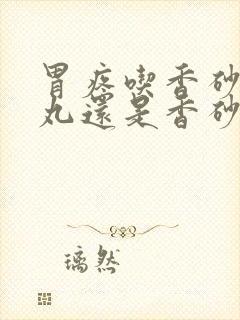 胃疼喫香砂
丸還是香砂
璃然